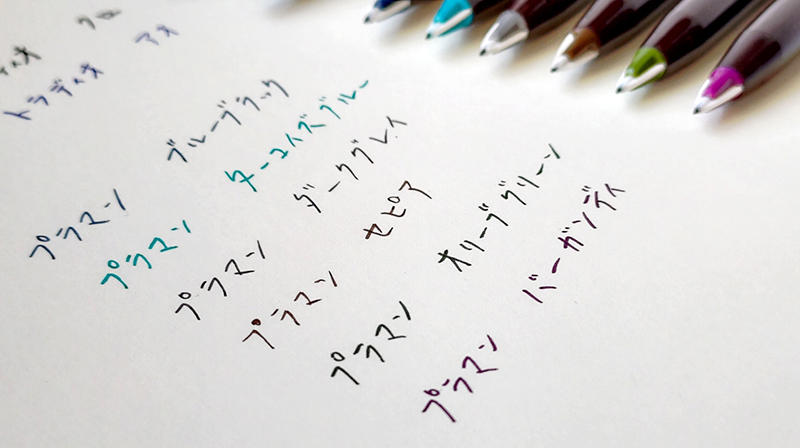 トラディオ アオ
プラマン ブルーブラック
プラマン ターコイズブルー
プラマン ダークグレイ
プラマン セピア
プラマン オリーブグリーン
プラマン バーガンディ